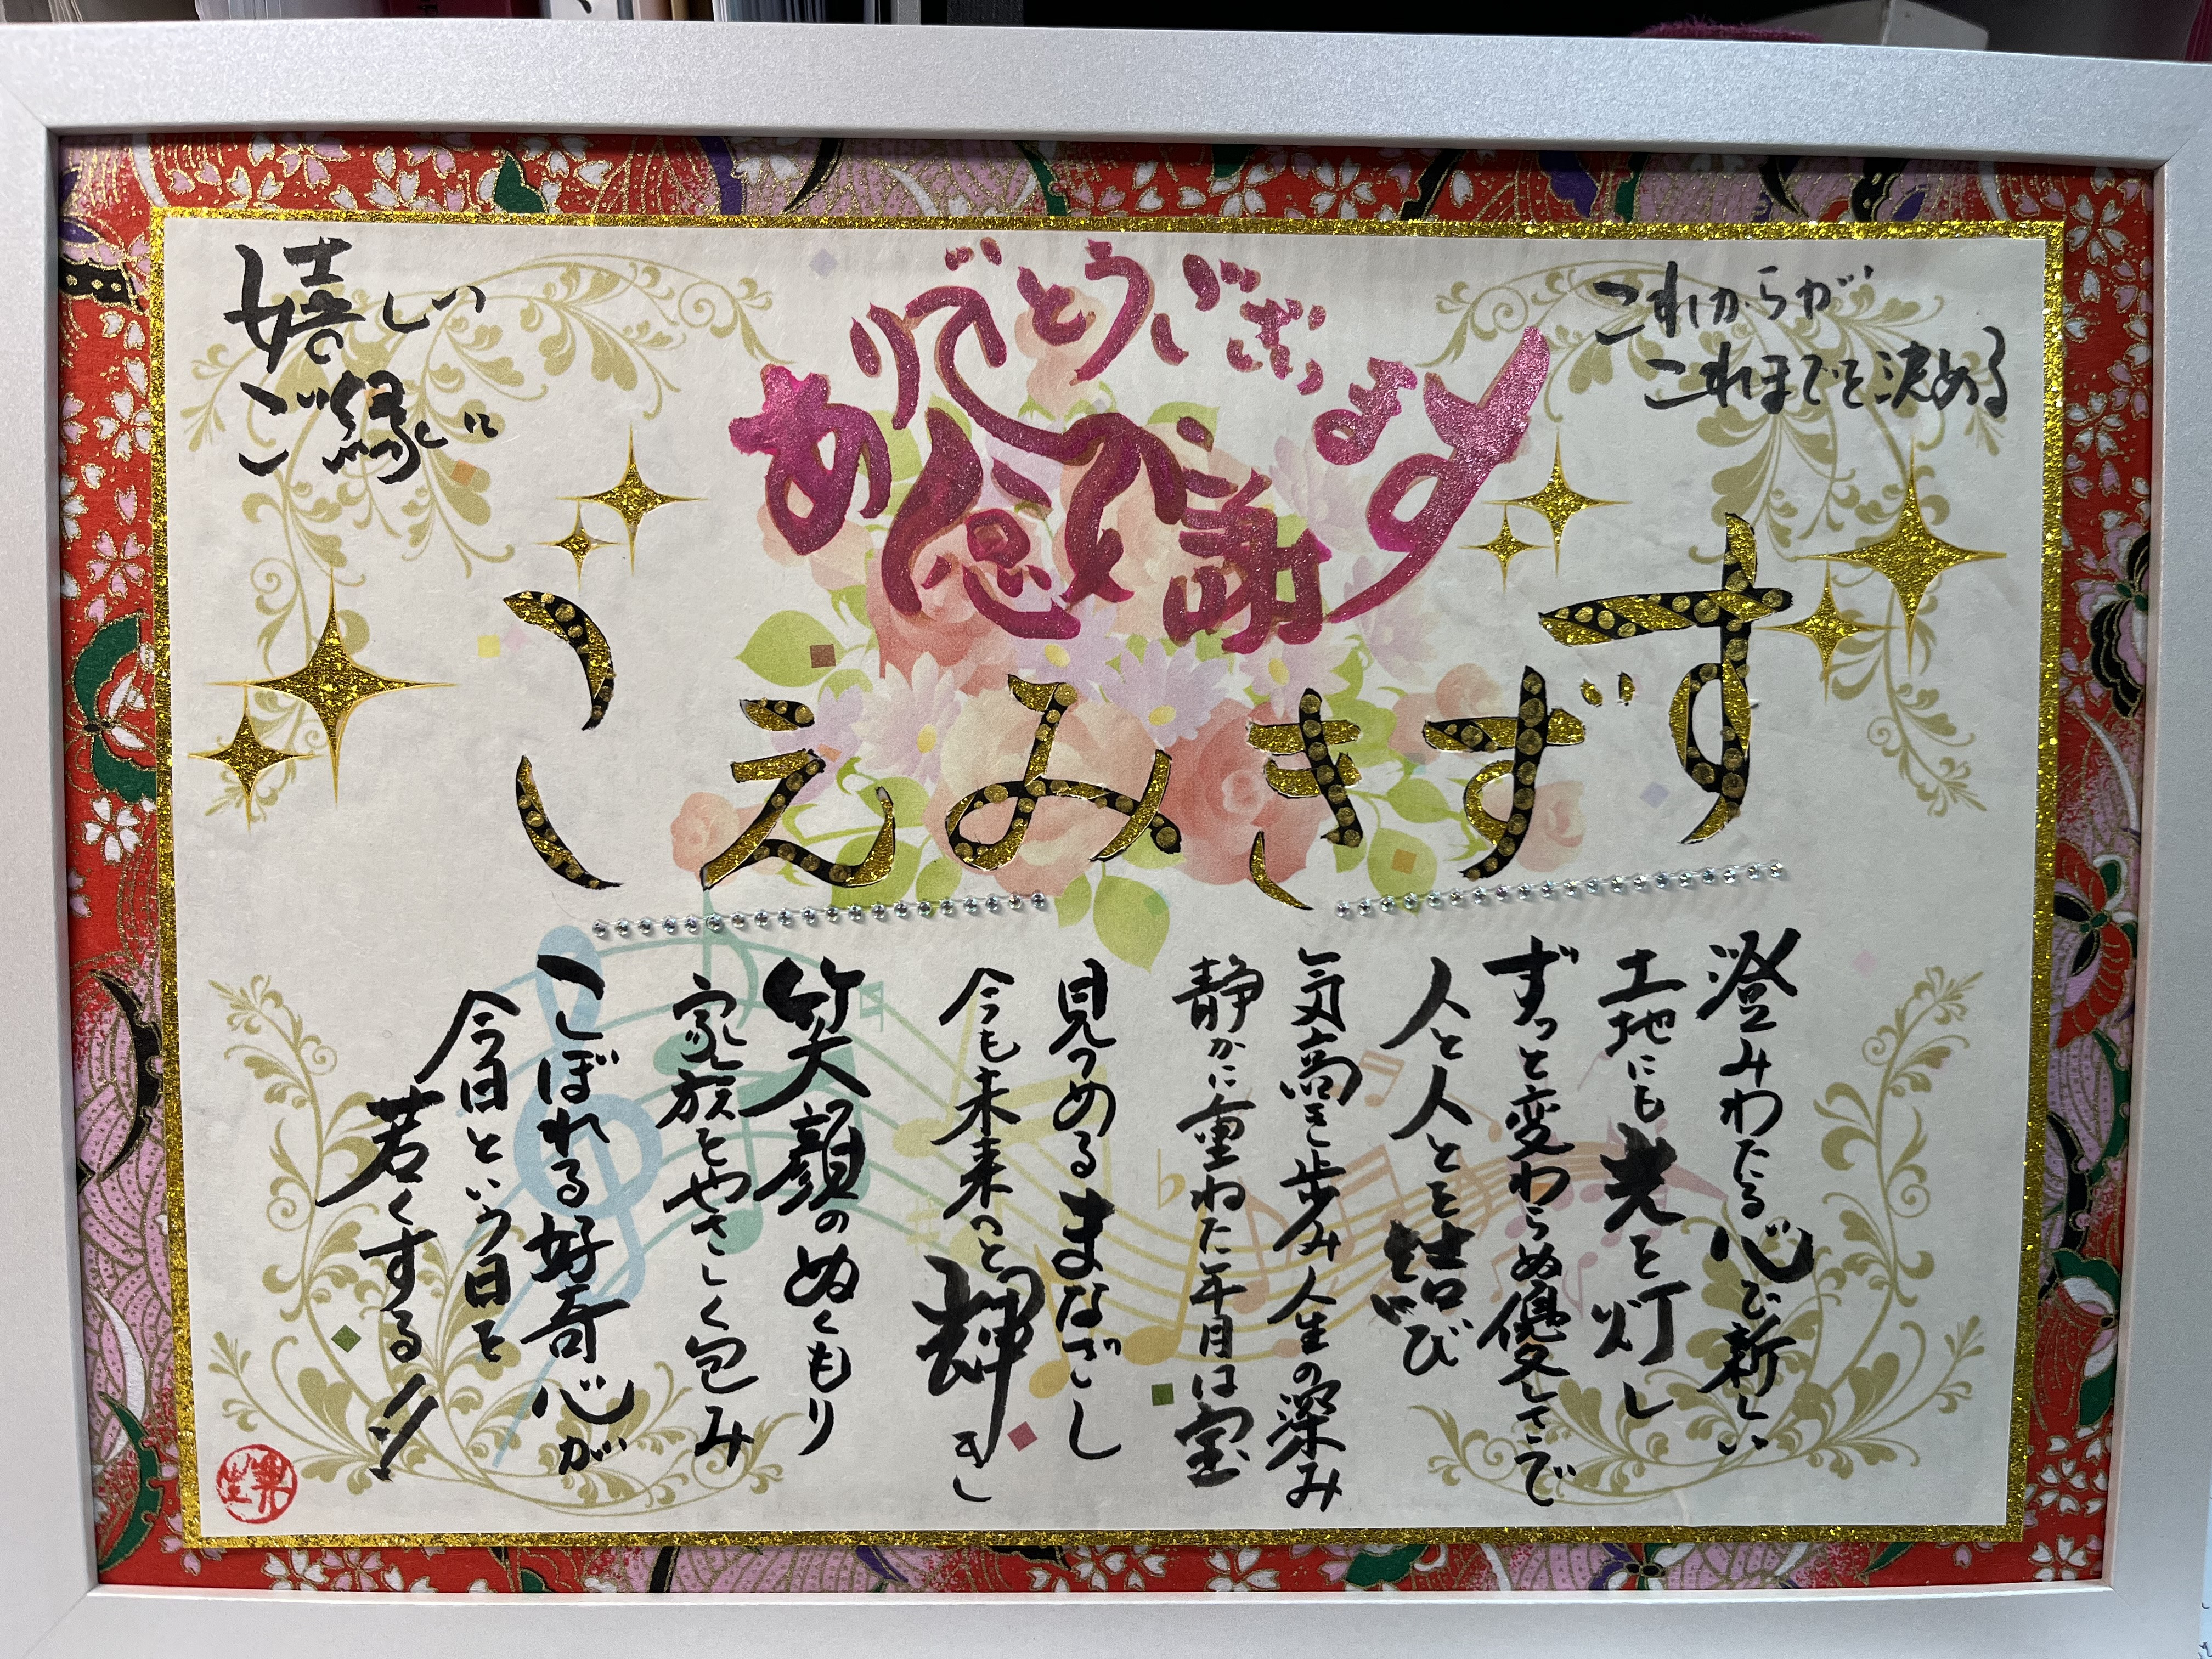 これからが
これまでを決める
ありがとうございます
感謝
嬉しい
ご縁に
すずきみえこ
澄みわたる心で新しい
土地にも光を灯し
ずっと変わらぬ優しさで
人と人とを結び
気高き歩み人生の深み
静かに重ねた年月は宝
見つめるまなざし
今も未来へと輝きし
笑顔のぬくもり
家族をやさしく包み
こぼれる好奇心が
今日という日を
若くする!!